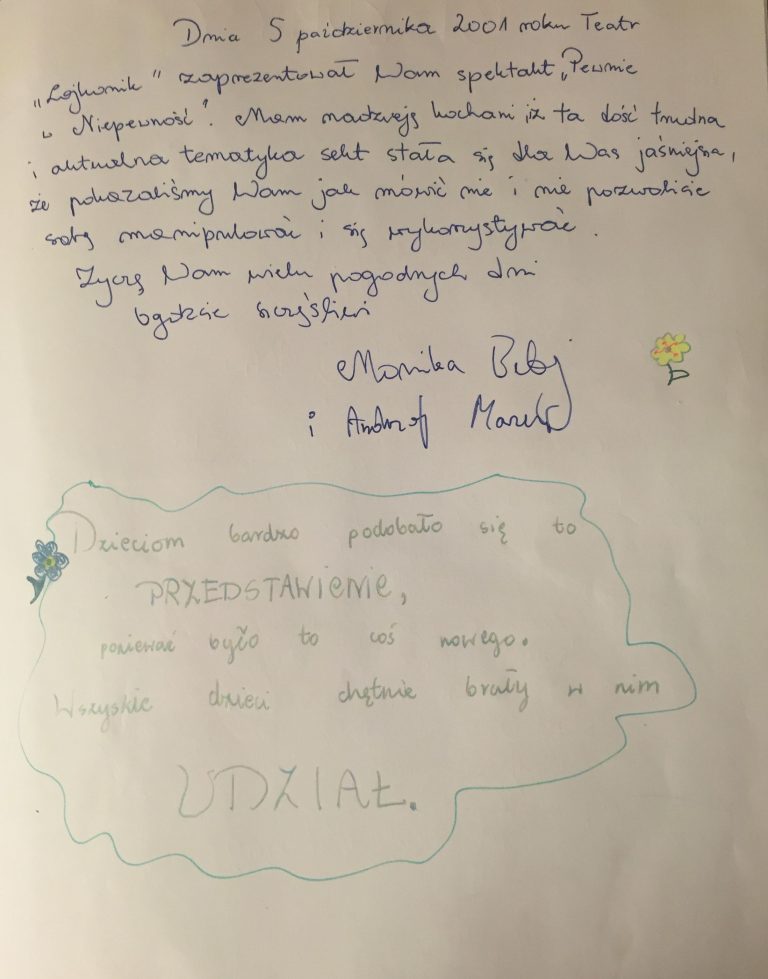 Dnia 5 października 2001 roku Teatr
„Lejkonik” zaprezentował Wam spektakl „Pewnie
w Niepewność”. Mam nadzieję kochani iż ta dość trudna
i aktualna tematyka sekt stała się dla Was jaśniejsza,
że pokazaliśmy Wam jak mówić nie i nie pozwolicie
sobą manipulować i się wykorzystywać.
Życzę Wam wielu pogodnych dni
bądźcie szczęśliwi
Monika
i Andrzej
Dzieciom bardzo podobało się to
PRZEDSTAWIENIE,
ponieważ było to coś nowego.
Wszyskie dzieci chętnie brały w nim
UDZIAŁ.